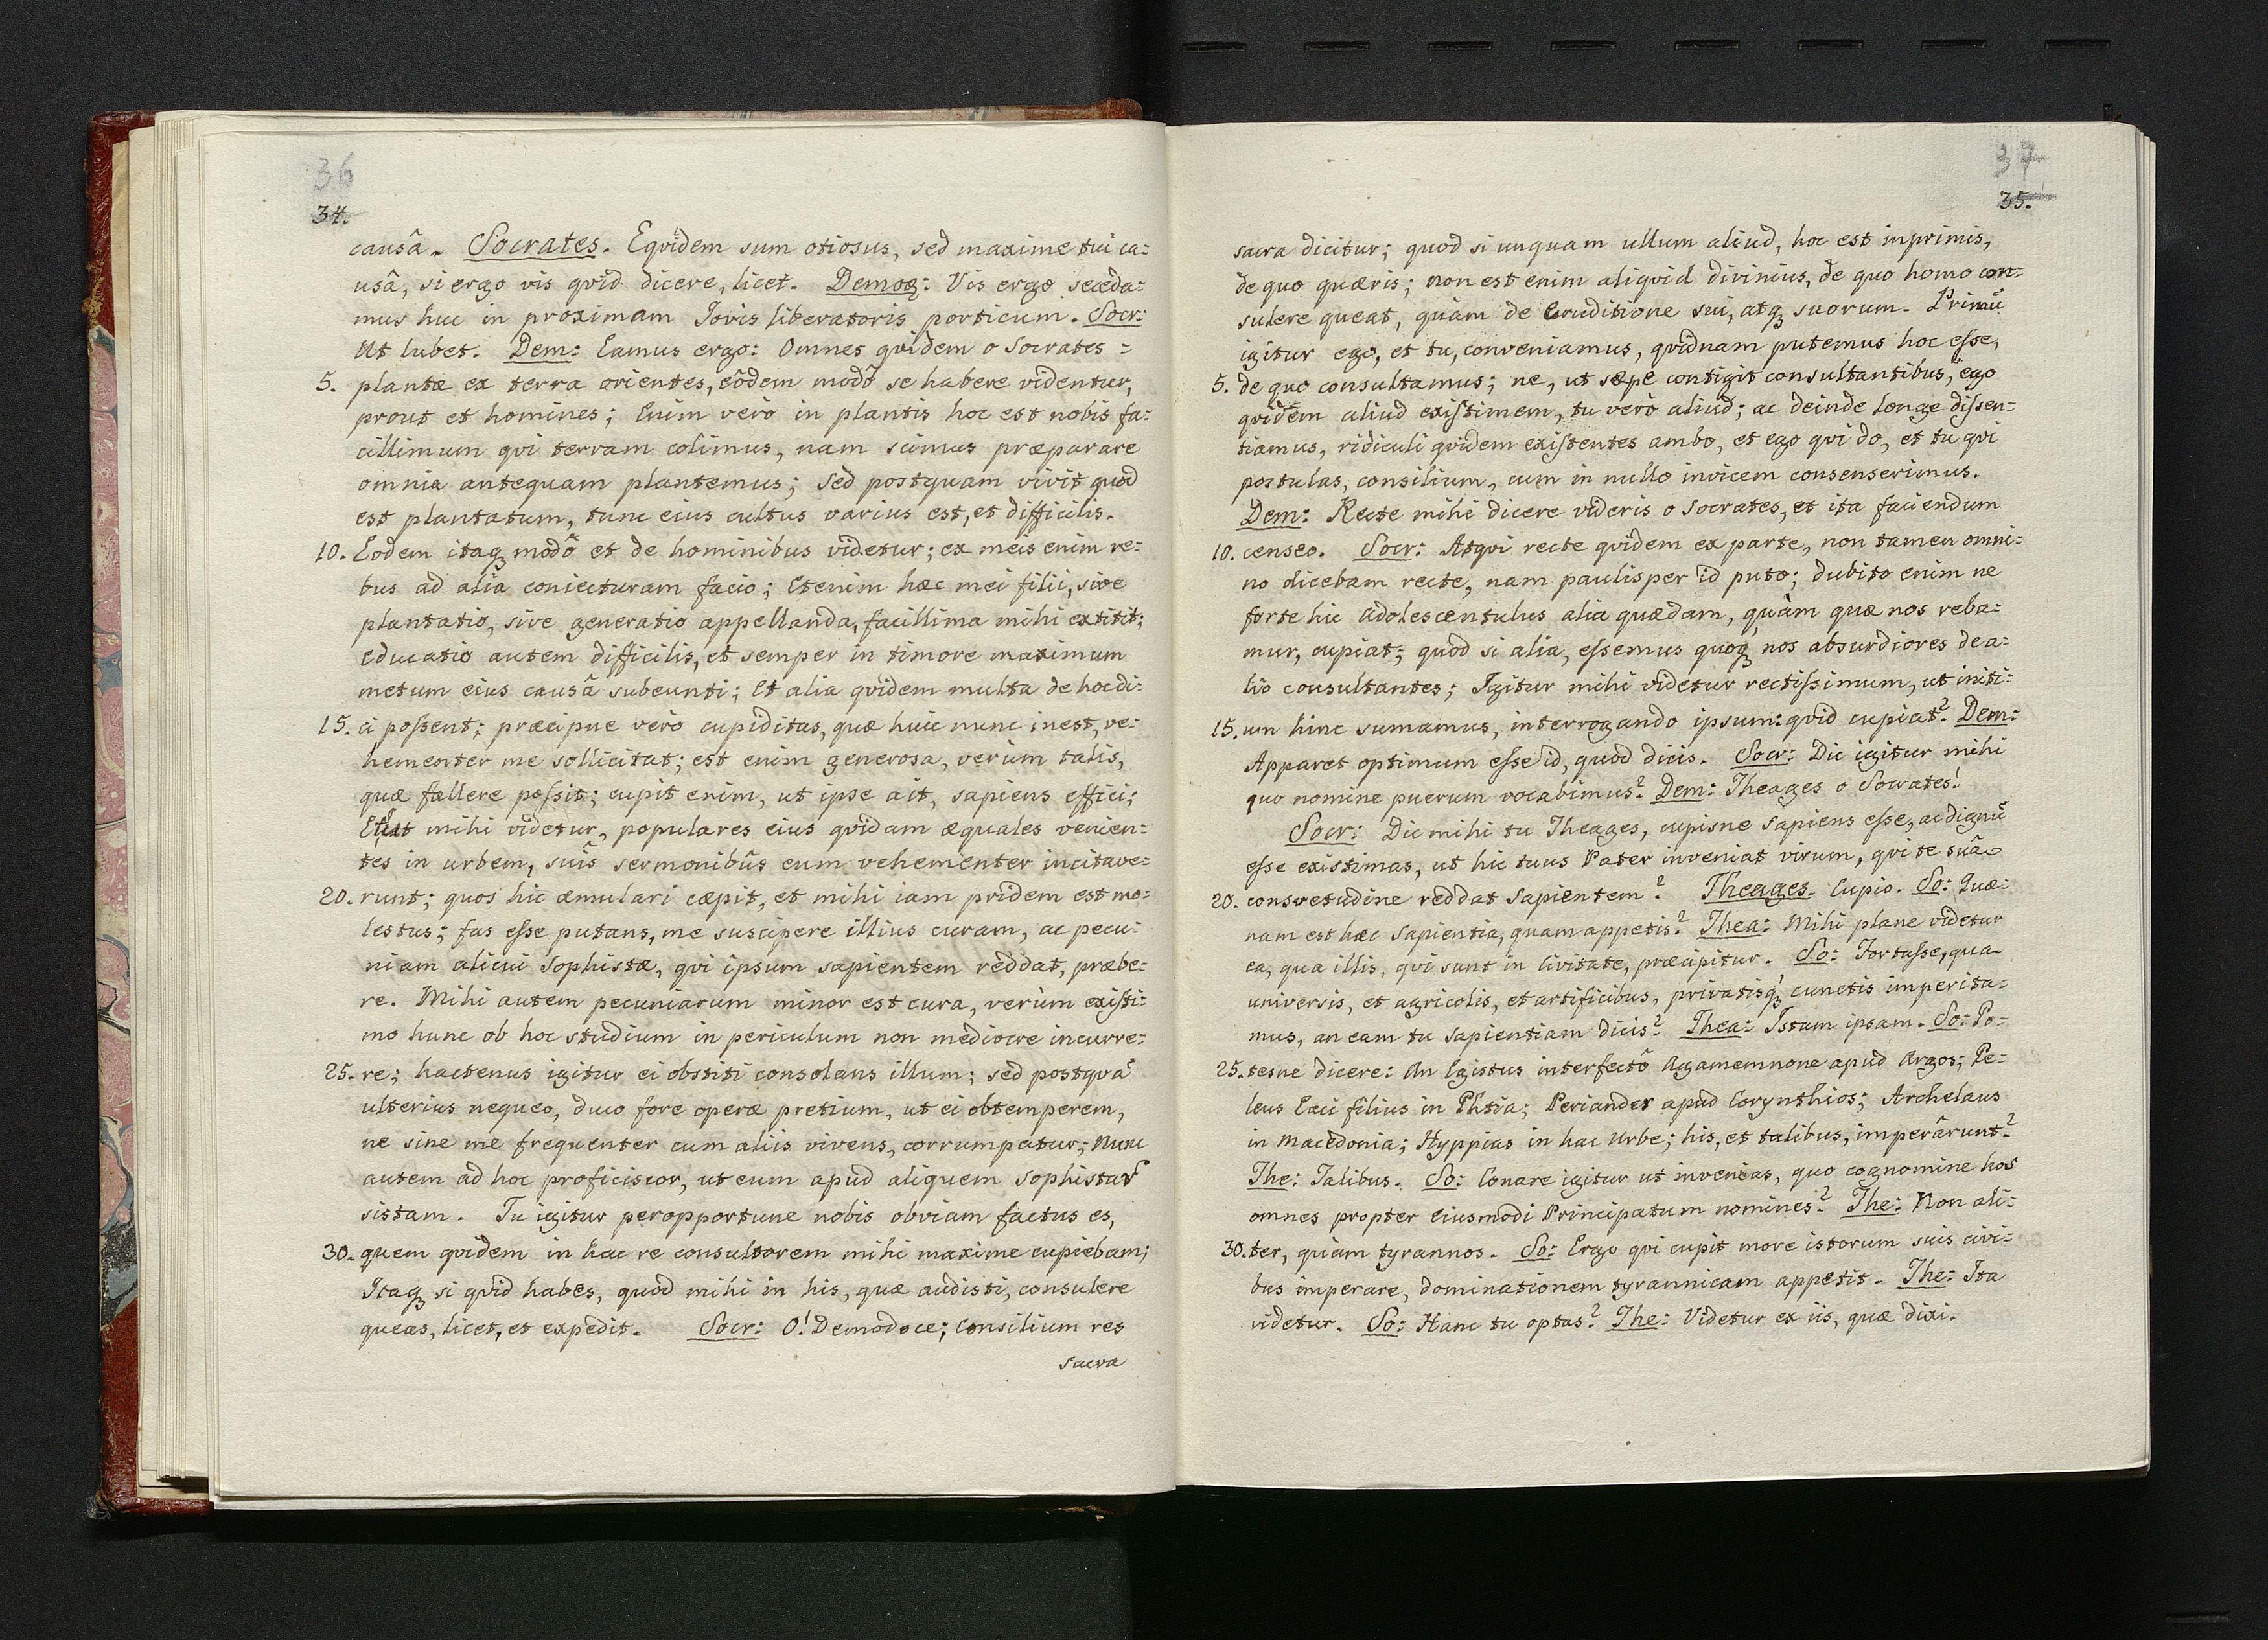 36
34.
causâ. Socrates. Eqvidem sum otiosus, sed maxime tui ca:
usâ, si ergo vis qvid dicere, licet. Demog: Vis ergo seceda:
mus huc in proximam Iovis liberatoris porticum. Socr:
Ut lubet. Dem: Eamus ergo: Omnes qvidem o Socrates =
5. plantæ ex terra orientes, eôdem modô se habere videntur,
prout et homines; Enim verò in plantis hoc est nobis fa:
cillimum qvi terram colimus, nam scimus præparare
omnia antequam plantemus; sed postquam vivit quod
est plantatum, tunc eius cultus varius est, et difficilis.
10. Eodem itaqꝫ modô et de hominibus videtur; ex meis enim re:
bus ad alia coniecturam facio; Etenim hæc mei filii, sive
plantatio, sive generatio appellanda, facillima mihi extitit;
educatio autem difficilis, et semper in timore maximum
metum eius causâ subeunti; Et alia qvidem multa de hoc di:
15. ci poſsent; præcipue verò cupiditas, quæ huic nunc inest, ve:
hementer me sollicitat; est enim generosa, verùm talis,
quæ fallere poſsit; cupit enim, ut ipse ait, sapiens effici;
mihi videtur, populares eius qvidam æquales venien:
tes in urbem, suîs sermonibûs eum vehementer incitave:
20. runt; quos hic æmulari cæpit, et mihi iam pridem est mo:
lestus; fas eſse putans, me suscipere illius curam, ac pecu:
niam alicui Sophistæ, qvi ipsum sapientem reddat, præbe:
re. Mihi autem pecuniarum minor est cura, verùm exiſti:
mo hunc ob hoc studium in periculum non mediocre incurre:
25. re; hactenus igitur ei obstiti consolans illum; sed postqvã
ulterius nequeo, duco fore operæ pretium, ut ei obtemperem,
ne sine me frequenter cum aliis vivens, corrumpatur; Nunc
autem ad hoc proficiscor, ut eum apud aliquem Sophistar̃
sistam. Tu igitur peropportune nobis obviam factus es,
30. quem qvidem in hac re consultorem mihi maxime cupiebam;
Itaqꝫ si qvid habes, quod mihi in his, quæ audisti, consulere
queas, licet, et expedit. Socr: O! Demodoce; Consilium res
sacra
37
35.
sacra dicitur; quod si unquam ullum aliud, hoc est inprimis,
de quo quæris; non est enim aliqvid divinius, de quo homo con:
sulere queat, quàm de Eruditione sui, atqꝫ suorum. Primũ
igitur ego, et tu, conveniamus, qvidnam putemus hoc eſse,
5. de quo consultamus; ne, ut sæpe contigit consultantibus, ego
qvidem aliud exiſtimem, tu verò aliud; ac deinde longe diſsen:
tiamus, ridiculi qvidem exiſtentes ambo, et ego qvi do, et tu qvi
postulas, consilium, cum in nullo invicem consenserimus.
Dem: Recte mihi dicere videris o Socrates, et ita faciendum
10. censeo. Socr: Atqvi recte qvidem ex parte, non tamen omni:
no dicebam recte, nam paulisper id puto; dubito enim ne
forte hic adolescentulus alia quædam, quàm quæ nos reba:
mur, cupiat; quod si alia, eſsemus quoqꝫ nos absurdiores de a:
liô consultantes; Igitur mihi videtur rectiſsimum, ut initi:
15. um hinc sumamus, interrogando ipsum: qvid cupiat? Dem:
Apparet optimum eſse id, quod dicis. Socr: Dic igitur mihi
quo nomine puerum vocabimus? Dem: Theages o Socrates!
Socr: Dic mihi tu Theages, cupisne sapiens eſse, ac dignũ
eſse existimas, ut hic tuus Pater inveniat virum, qvi te suâ
20. consvetudine reddat sapientem? Theages. Cupio. So: Quæ:
nam est hæc Sapientia, quam appetis? Thea: Mihi plane videtur
ea, qua illis, qvi sunt in Civitate, præcipitur. So: Fortaſse, qua
universis, et agricolis, et artificibus, privatisqꝫ cunctis imperita:
mus, an eam tu Sapientiam dicis? Thea: Istam ipsam. So: Po:
25. tesne dicere: an Egistus interfectô Agamemnone apud Argos; Pe:
leus Eaci filius in Phtia; Periander apud Corynthios; Archelaus
in Macedonia; Hyppias in hac Urbe; his, et talibus, imperârunt?
The: Talibus. So: Conare igitur ut invenias, quo cognomine hos
omnes propter Eiusmodi Principatum nomines? The: Non ali:
30. ter, quàm tyrannos. So: Ergo qvi cupit more istorum suis civi:
bus imperare, dominationem tyrannicam appetit. The: Ita
videtur. So: Hanc tu optas? The: Videtur ex iis, quæ dixi.